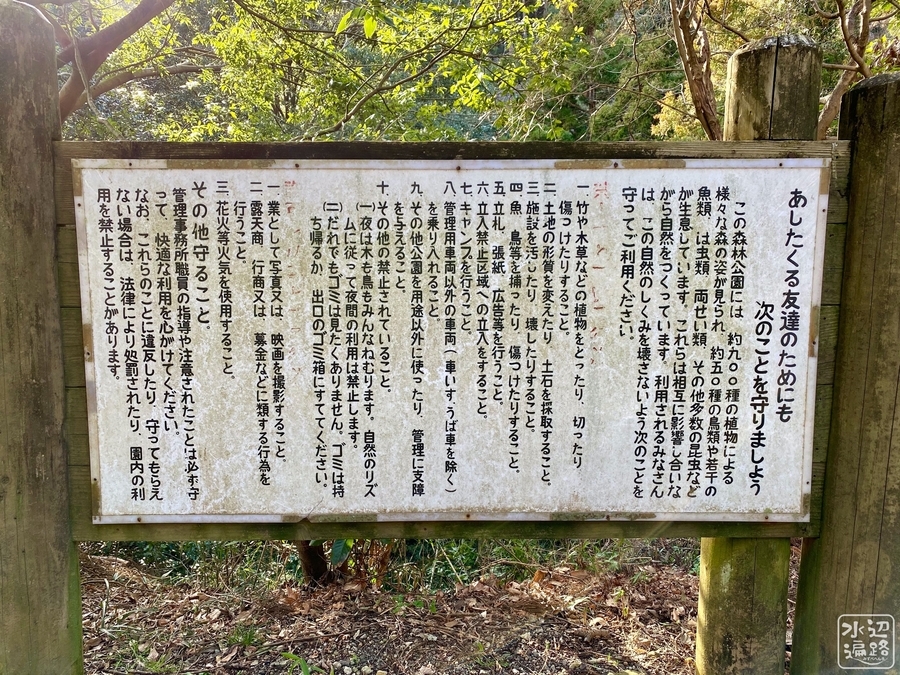 あしたくる友達のためにも
次のことを守りましよう
この森林公園には、約九〇〇種の植物による
様々な森の姿が見られ、約五〇種の鳥類や若干の
魚類、は虫類、両せい類、その他多数の昆虫など
が生息しています。これらは相互に影響し合いな
がら自然をつくっています。利用されるみなさん
は、この自然のしくみを壊さないよう次のことを
守ってご利用ください。
一、竹や木草などの植物をとったり、切ったり
傷つけたりすること。
二、土地の形質を変えたり、土石を採取すること。
三、施設を汚したり、壊したりすること。
四、魚、鳥等を捕ったり、傷つけたりすること。
五、立札、張紙、広告等を行うこと。
六、立入禁止区域への立入をすること。
七、キャンプを行うこと。
八、管理用車両以外の車両(車いす、うば車を除く)
を乗り入れること。
九、その他公園を用途以外に使ったり、管理に支障
を与えること。
十、その他の禁止されていること。
(一)夜は木も鳥もみんなねむります。自然のリズ
ムに従って夜間の利用は禁止します。
(二)だれでもゴミは見たくありません。ゴミは持
ち帰るか、出口のゴミ箱にすててください。
一、業として写真又は、映画を撮影すること。
二、露天商、行商又は、募金などに類する行為を
行うこと。
三、花火等火気を使用すること。
その他守ること
管理事務所職員の指導や注意されたことは必ず守
って、快適な利用を心がけてください。
なお、これらのことに違反したり、守ってもらえ
ない場合は、法律により処罰されたり、園内の利
用を禁止することがあります。
水辺遍路